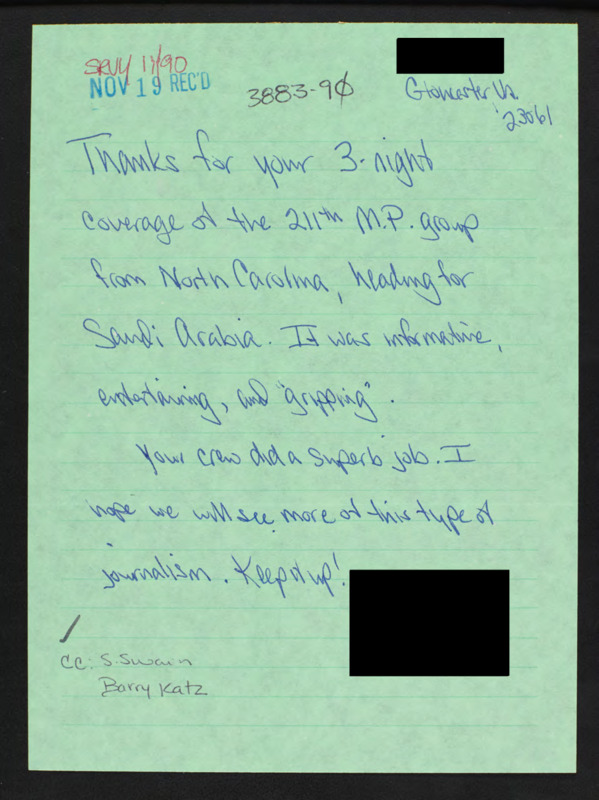 SRVY 11/90
NOV 19 REC'D
3883-90
Gloucester Va.
23061
Thanks for your 3-night
coverage of the 211th M.P. group
from North Carolina, heading for
Saudi Arabia. It was informative,
entertaining, and "gripping".
Your crew did a superb job. I
hope we will see more of this type of
journalism. Keep it up!
cc: S. Swain
Barry Katz